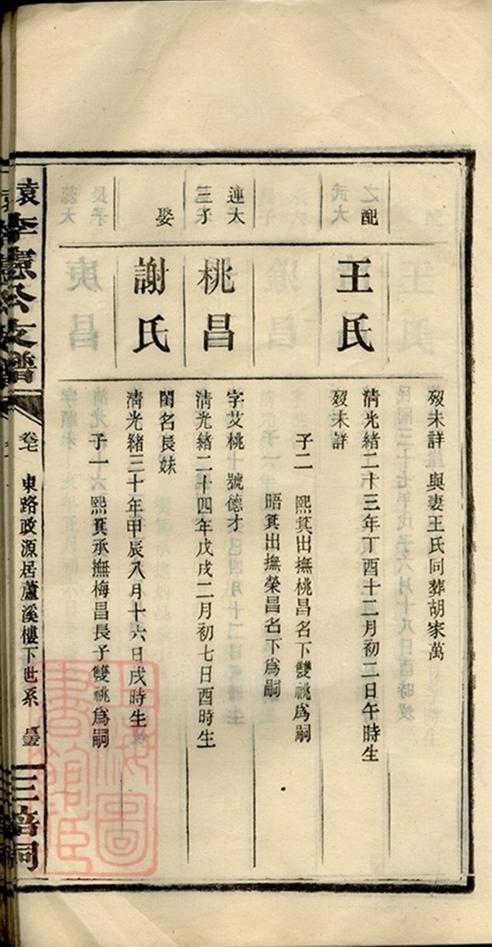 歿未詳 與妻王氏同葬胡家萬
配
王氏
清光緒二十三年丁酉十二月初二日午時生
歿未詳
子二 熙箕出撫桃昌名下雙祧爲嗣
晤箕出撫榮昌名下爲嗣
連大
三子
桃昌
字艾桃 號德才
清光緒二十四年戊戌二月初七日酉時生
娶
謝氏
閨名長妹
清光緒三十年甲辰八月十六日戌時生
子一 熙箕承撫梅昌長子雙祧爲嗣
袁李憲公支譜
卷七
東路政源居蘆溪樓下世系
三培祠
上海圖
書館藏